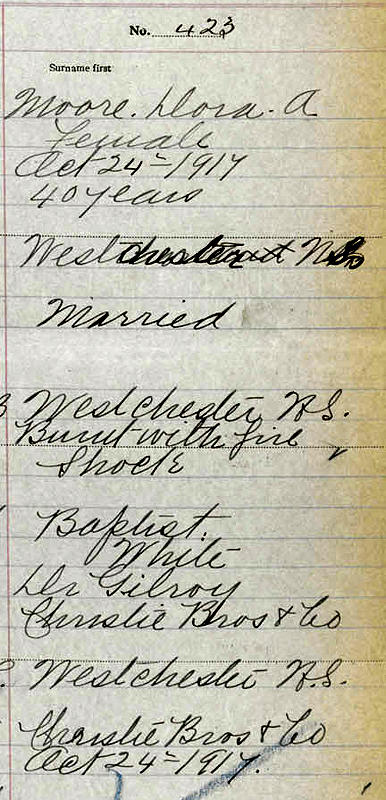 No. 423
Surname first
Moore. Dora. A
Female
Oct 24 - 1917
40 years
Westchester N.S.
Married
Westchester N.S.
Burnt with fire
Shock
Baptist.
White
Dr Gilroy
Christie Bros & Co
Westchester N.S.
Christie Bros & Co
Oct 24 - 1917.